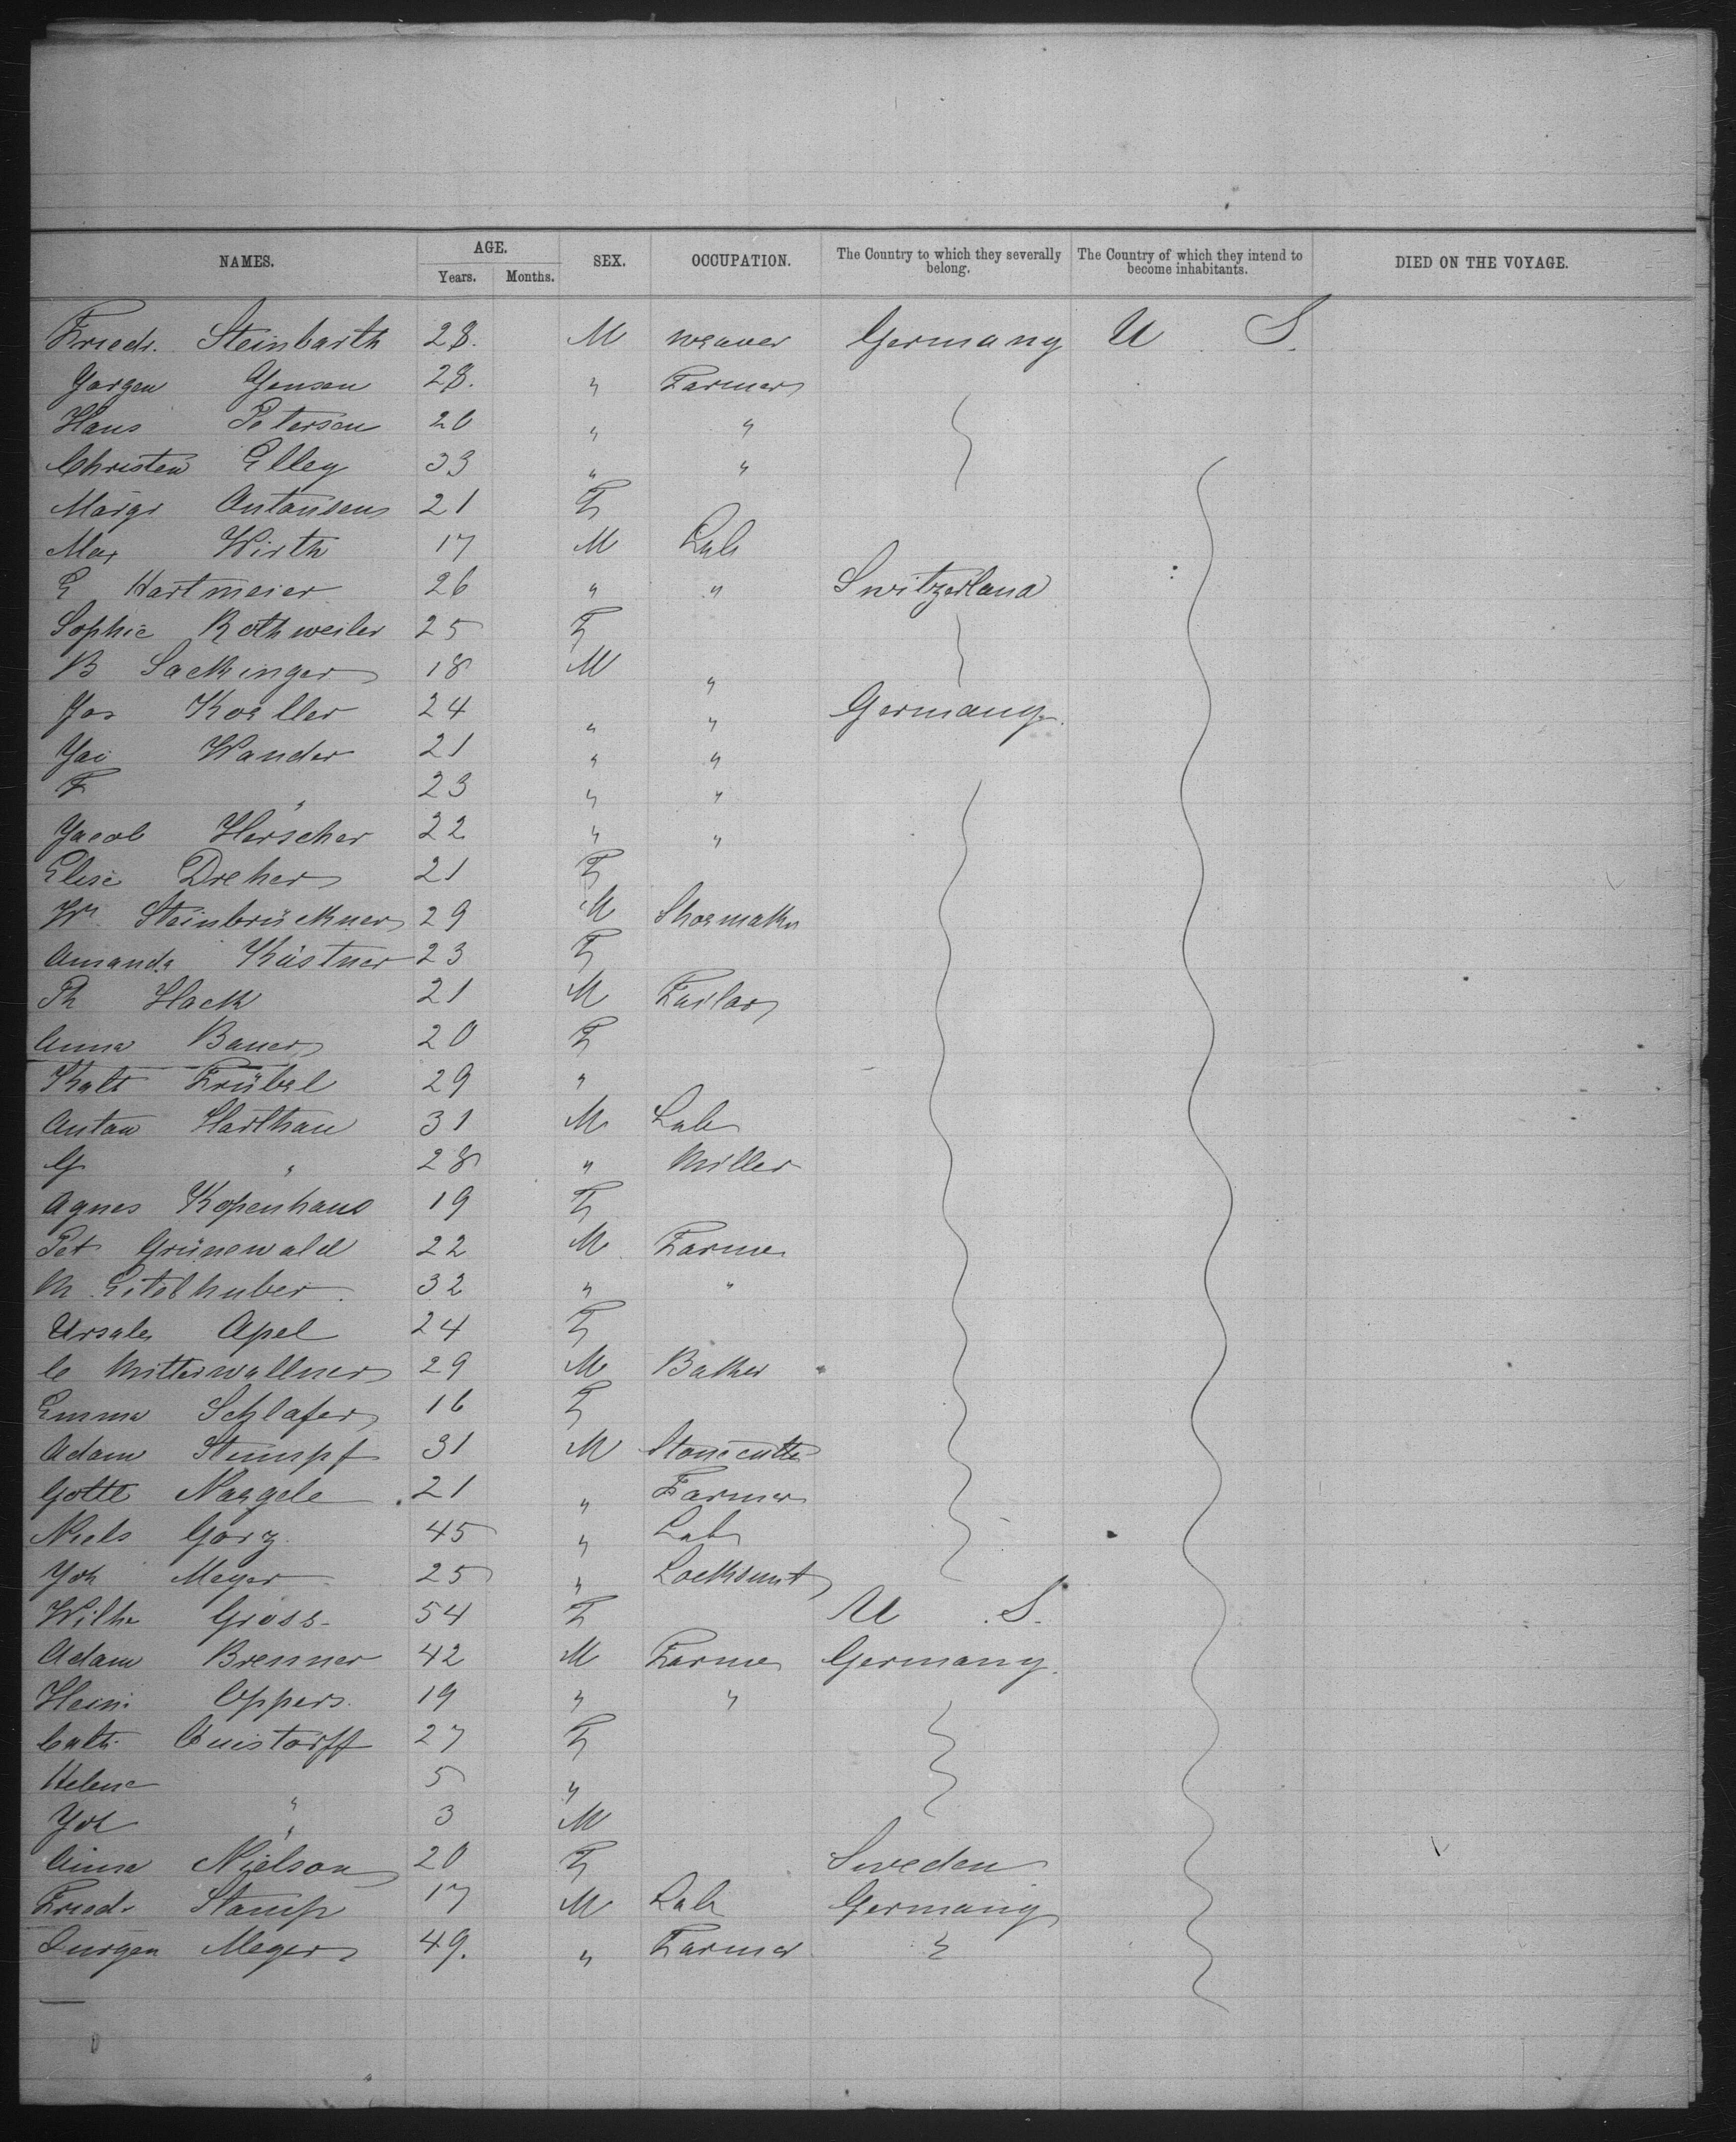 NAMES. AGE. SEX. OCCUPATION. The Country to which they severally belong. The Country of which they intend to become inhabitants. DIED ON THE VOYAGE.
Years. Months.
Friedr. Steinbarth 28. M weaver Germany U S.
Yorgen Yensen 28. " Farmer
Hans Petersen 20 " "
Christen Elley 33 " "
Margr Antonsens 21 F
Max Wirth 17 M Lab
E Hartmeier 26 " " Switzerland
Sophie Rothweiler 25 F
B Sackinger 18 M "
Jos Koeller 24 " " Germany
Wander 21 " "
F " 23 " "
Yacob Herscher 22 " "
Elise Dreher 21 F
Wm Steinbrückner 29 M Shoemaker
Amanda Kästner 23 F
Ph Hack 21 M Tailor
Anna Bauer 20 F
Kath Trübel 29 "
Anton Harthan 31 M Lab
G " 28 " Miller
Agnes Kopenhaus 19 F
Pet Grünewald 22 M Farmer
M Eitelhuber 32 " "
Ursula Apel 24 F
C Mitterwallner 29 M Baker
Emma Schlafer 16 F
Adam Stumpf 31 M Stonecutter
Gottl Naegele 21 " Farmer
Niels Gorz 45 " Lab
Joh Meyer 25 " Locksmit
Wilhe Gross 54 F U S.
Adam Brenner 42 M Farmer Germany.
Hein. Oppers. 19 " "
Cath. Quistorff 27 F
Helene " 5 "
Joh " 3 M
Anna Nielson 20 F Sweden
Fried. Stamp 17 M Lab Germany
Jurgen Meyer 49. " Farmer